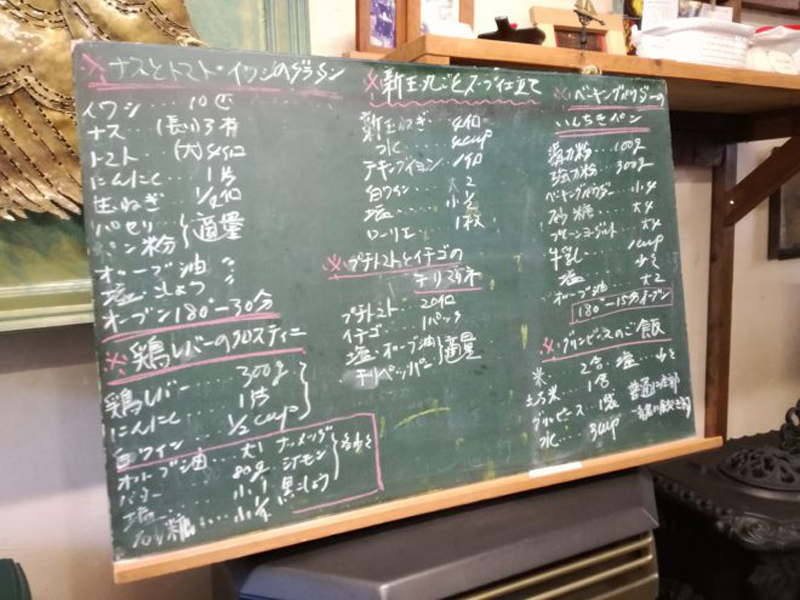 ※ナスとトマト・イワシのグラタン
イワシ・・・10匹
ナス・・・(長い)3本
トマト・・(大)4個
にんにく・・・1片
玉ねぎ・・・1/2個
パセリ
パン粉 適量
オーブ油 〃
塩こしょう 〃
オーブン180°-30分
※鶏レバーのクロスティーニ
鶏レバー・・・300g
にんにく・・・1片
白ワイン・・・1/2cup
オリーブ油・・・大1
バター・・・80g
塩・・・小1
砂糖・・・小
ナツメッグ
シナモン
黒こしょう
各少々
※新玉丸ごとスープ仕立て
新玉ねぎ・・・4個
水・・・4cup
チキンブイヨン・・・1個
白ワイン・・・大2
塩・・・小
ローリエ・・・1枚
※プチトマトとイチゴの
マリネ
プチトマト・・・20個
イチゴ・・・1パック
塩・オーブ油
チリペッパー 適量
※ベーキングパウダーの
いんちきパン
薄力粉・・・100g
強力粉・・・300g
ベーキングパウダー・・・小4
砂糖・・・大4
プレーンヨーグルト・・・大4
牛乳・・・1cup
塩・・・少々
オーブ油・・・大2
180°-15分オーブン
※グリンピースのご飯
米・・・2合 塩・・・少々
もち米・・・1合
グリンピース・・・1袋
水・・・3cup